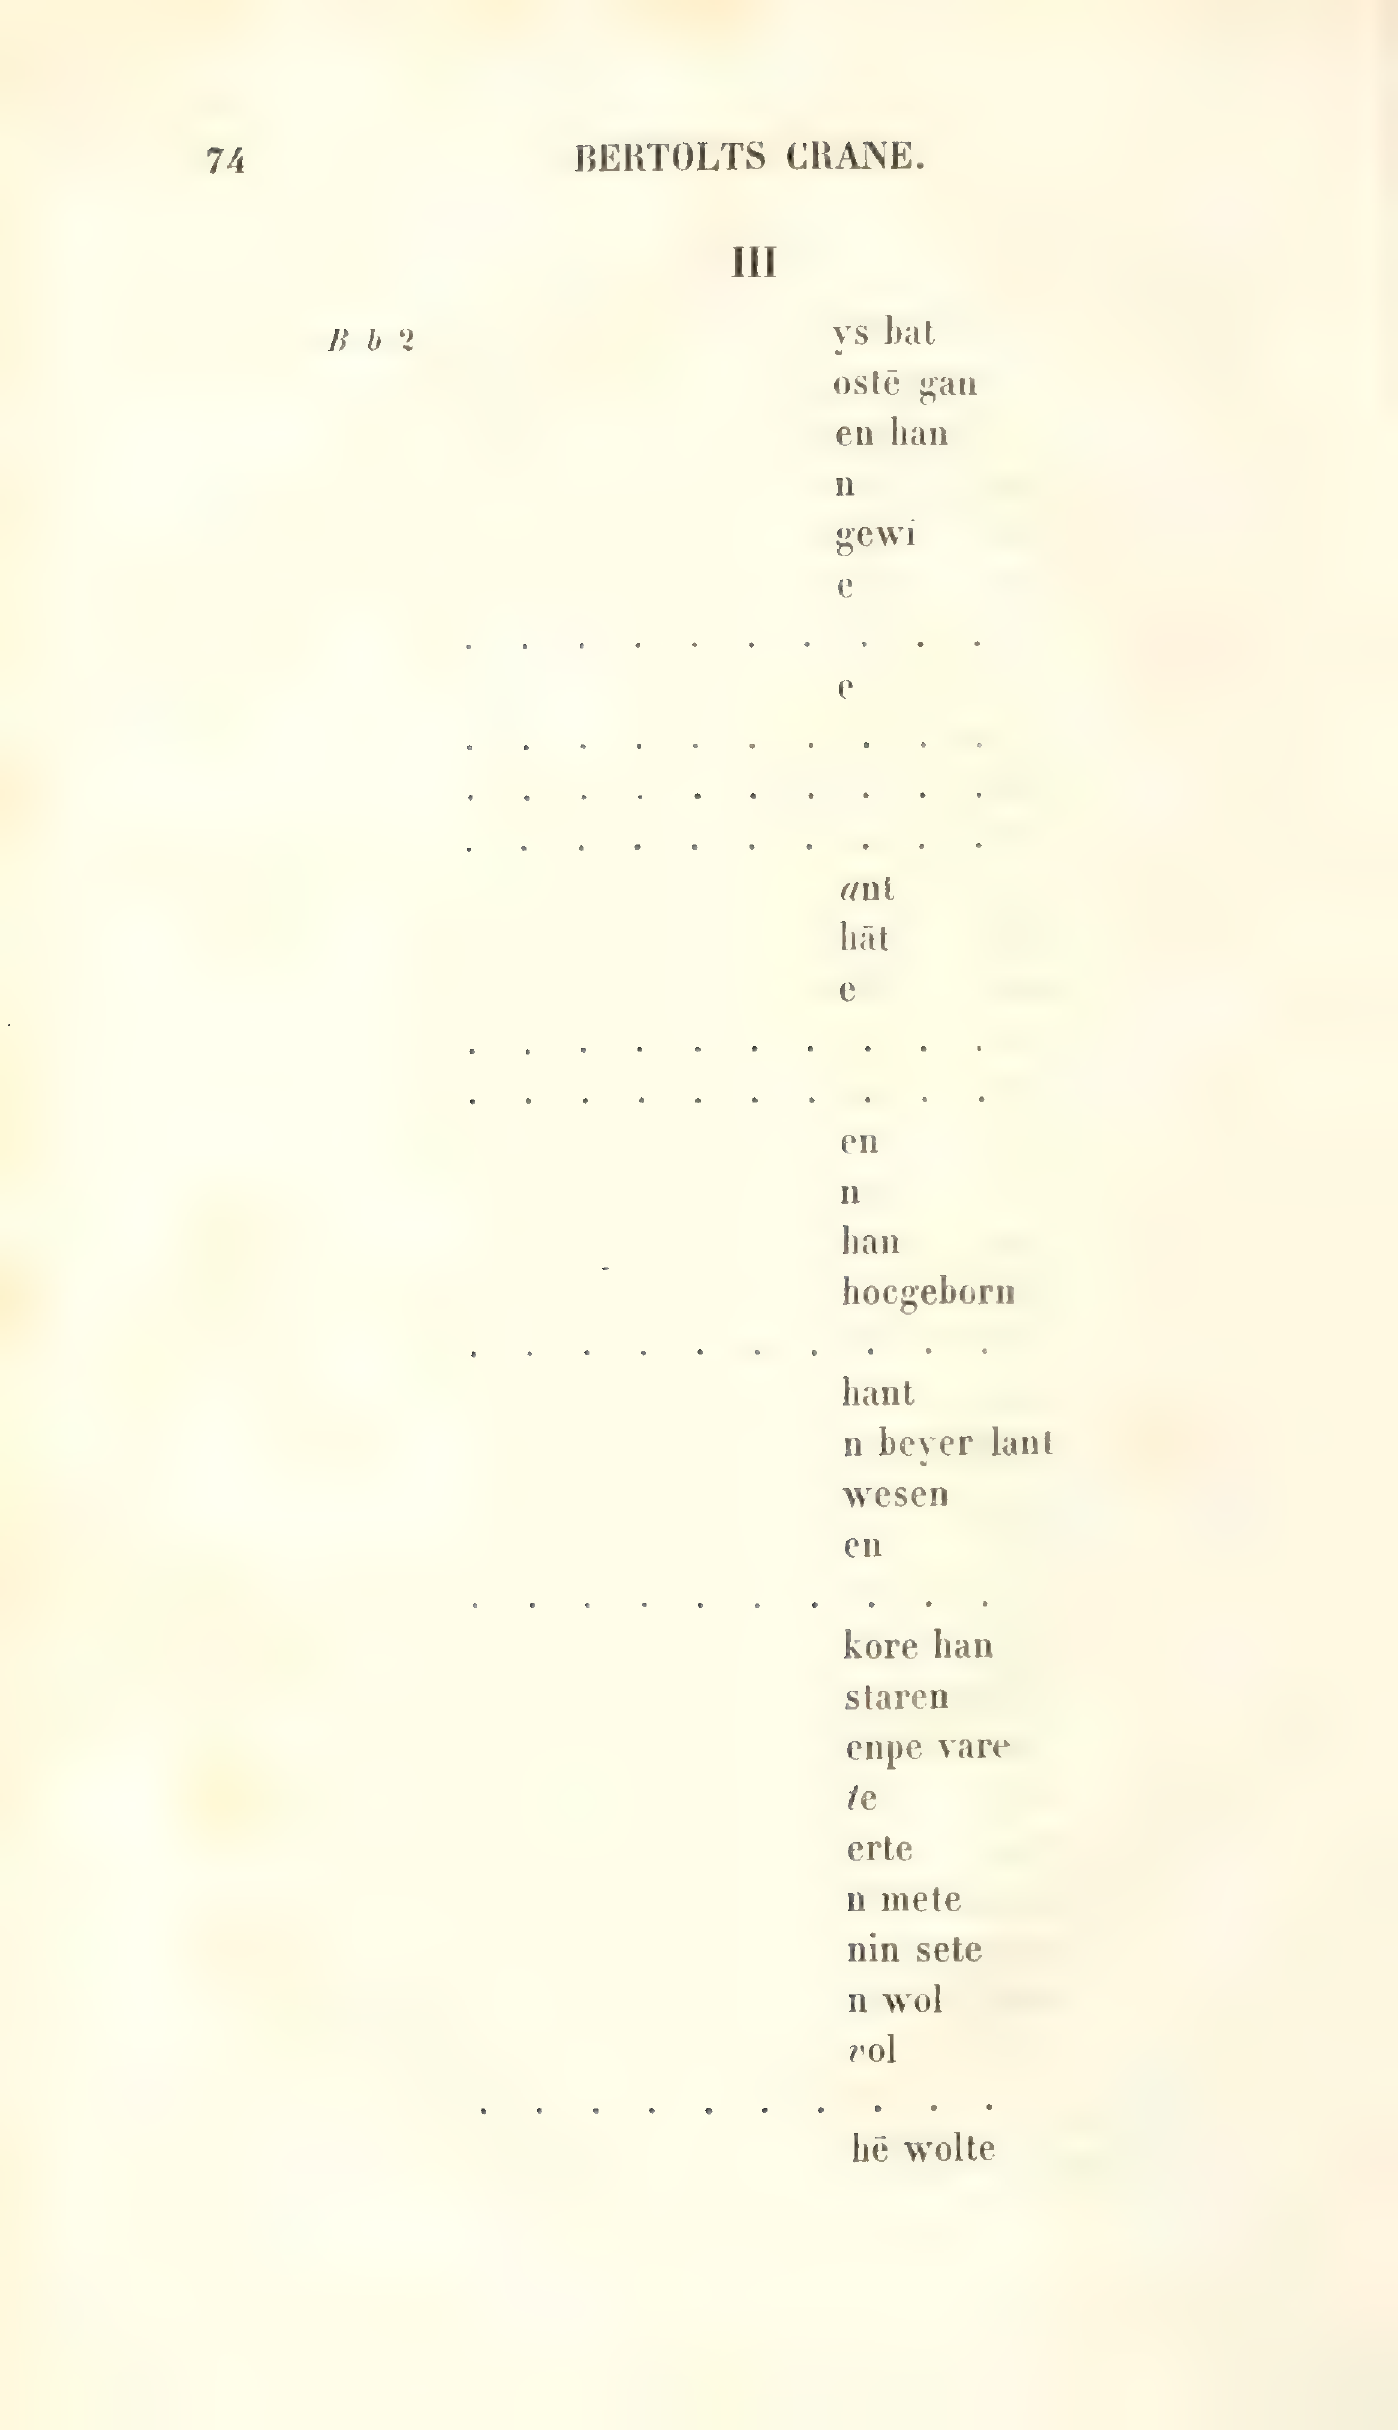 74 BERTOLTS CRANE.
III
B b 2 ẏs bat
ostē gan
en han
n
gewi
e
. . . . . . . . . .
e
. . . . . . . . . .
. . . . . . . . . .
. . . . . . . . . .
ant
hāt
e
. . . . . . . . . .
. . . . . . . . . .
en
n
han
hocgeborn
. . . . . . . . . .
hant
n beỵer lant
wesen
en
. . . . . . . . . .
kore han
staren
enpe vare
te
erte
n mete
nin sete
n wol
vol
. . . . . . . . . .
hē wolte